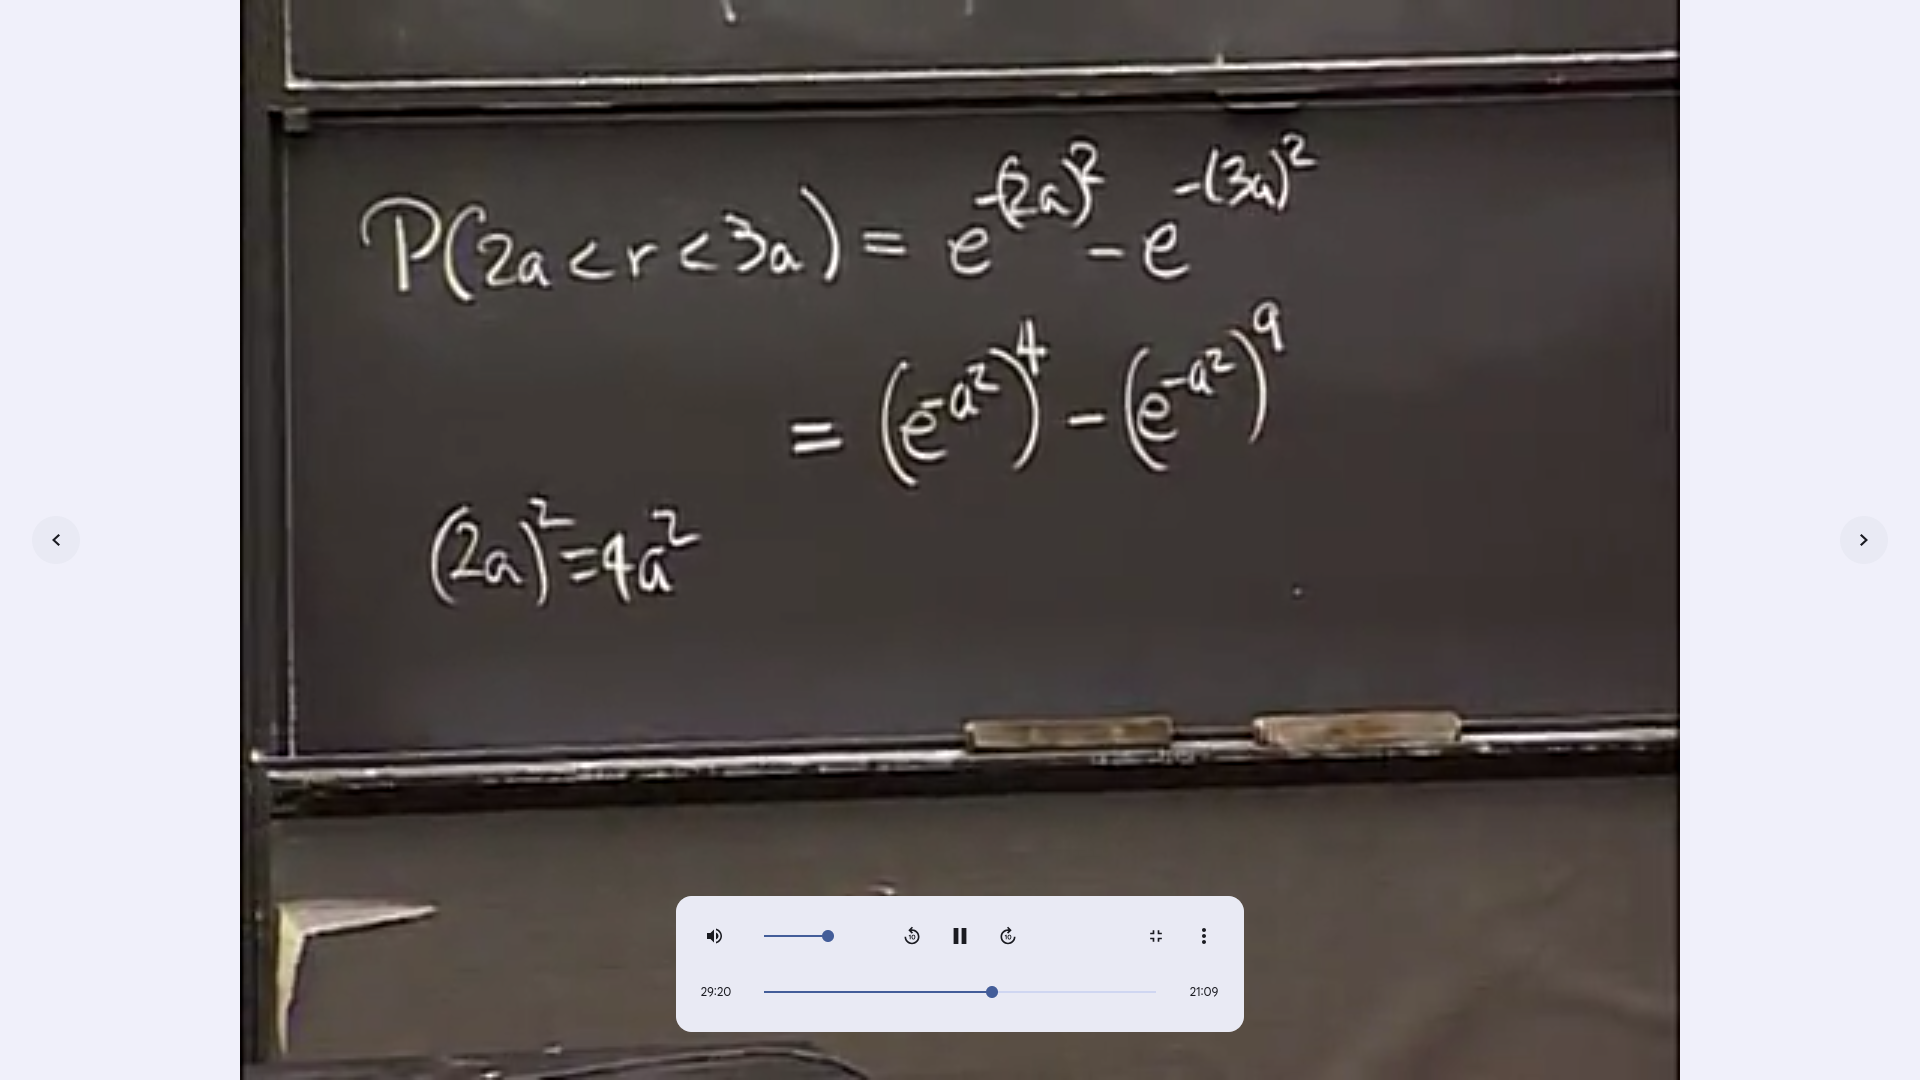 P(2a < r < 3a) = e^{-(2a)^2} - e^{-(3a)^2}
= (e^{-a^2})^4 - (e^{-a^2})^9
(2a)^2 = 4a^2
10 10
29:20 21:09